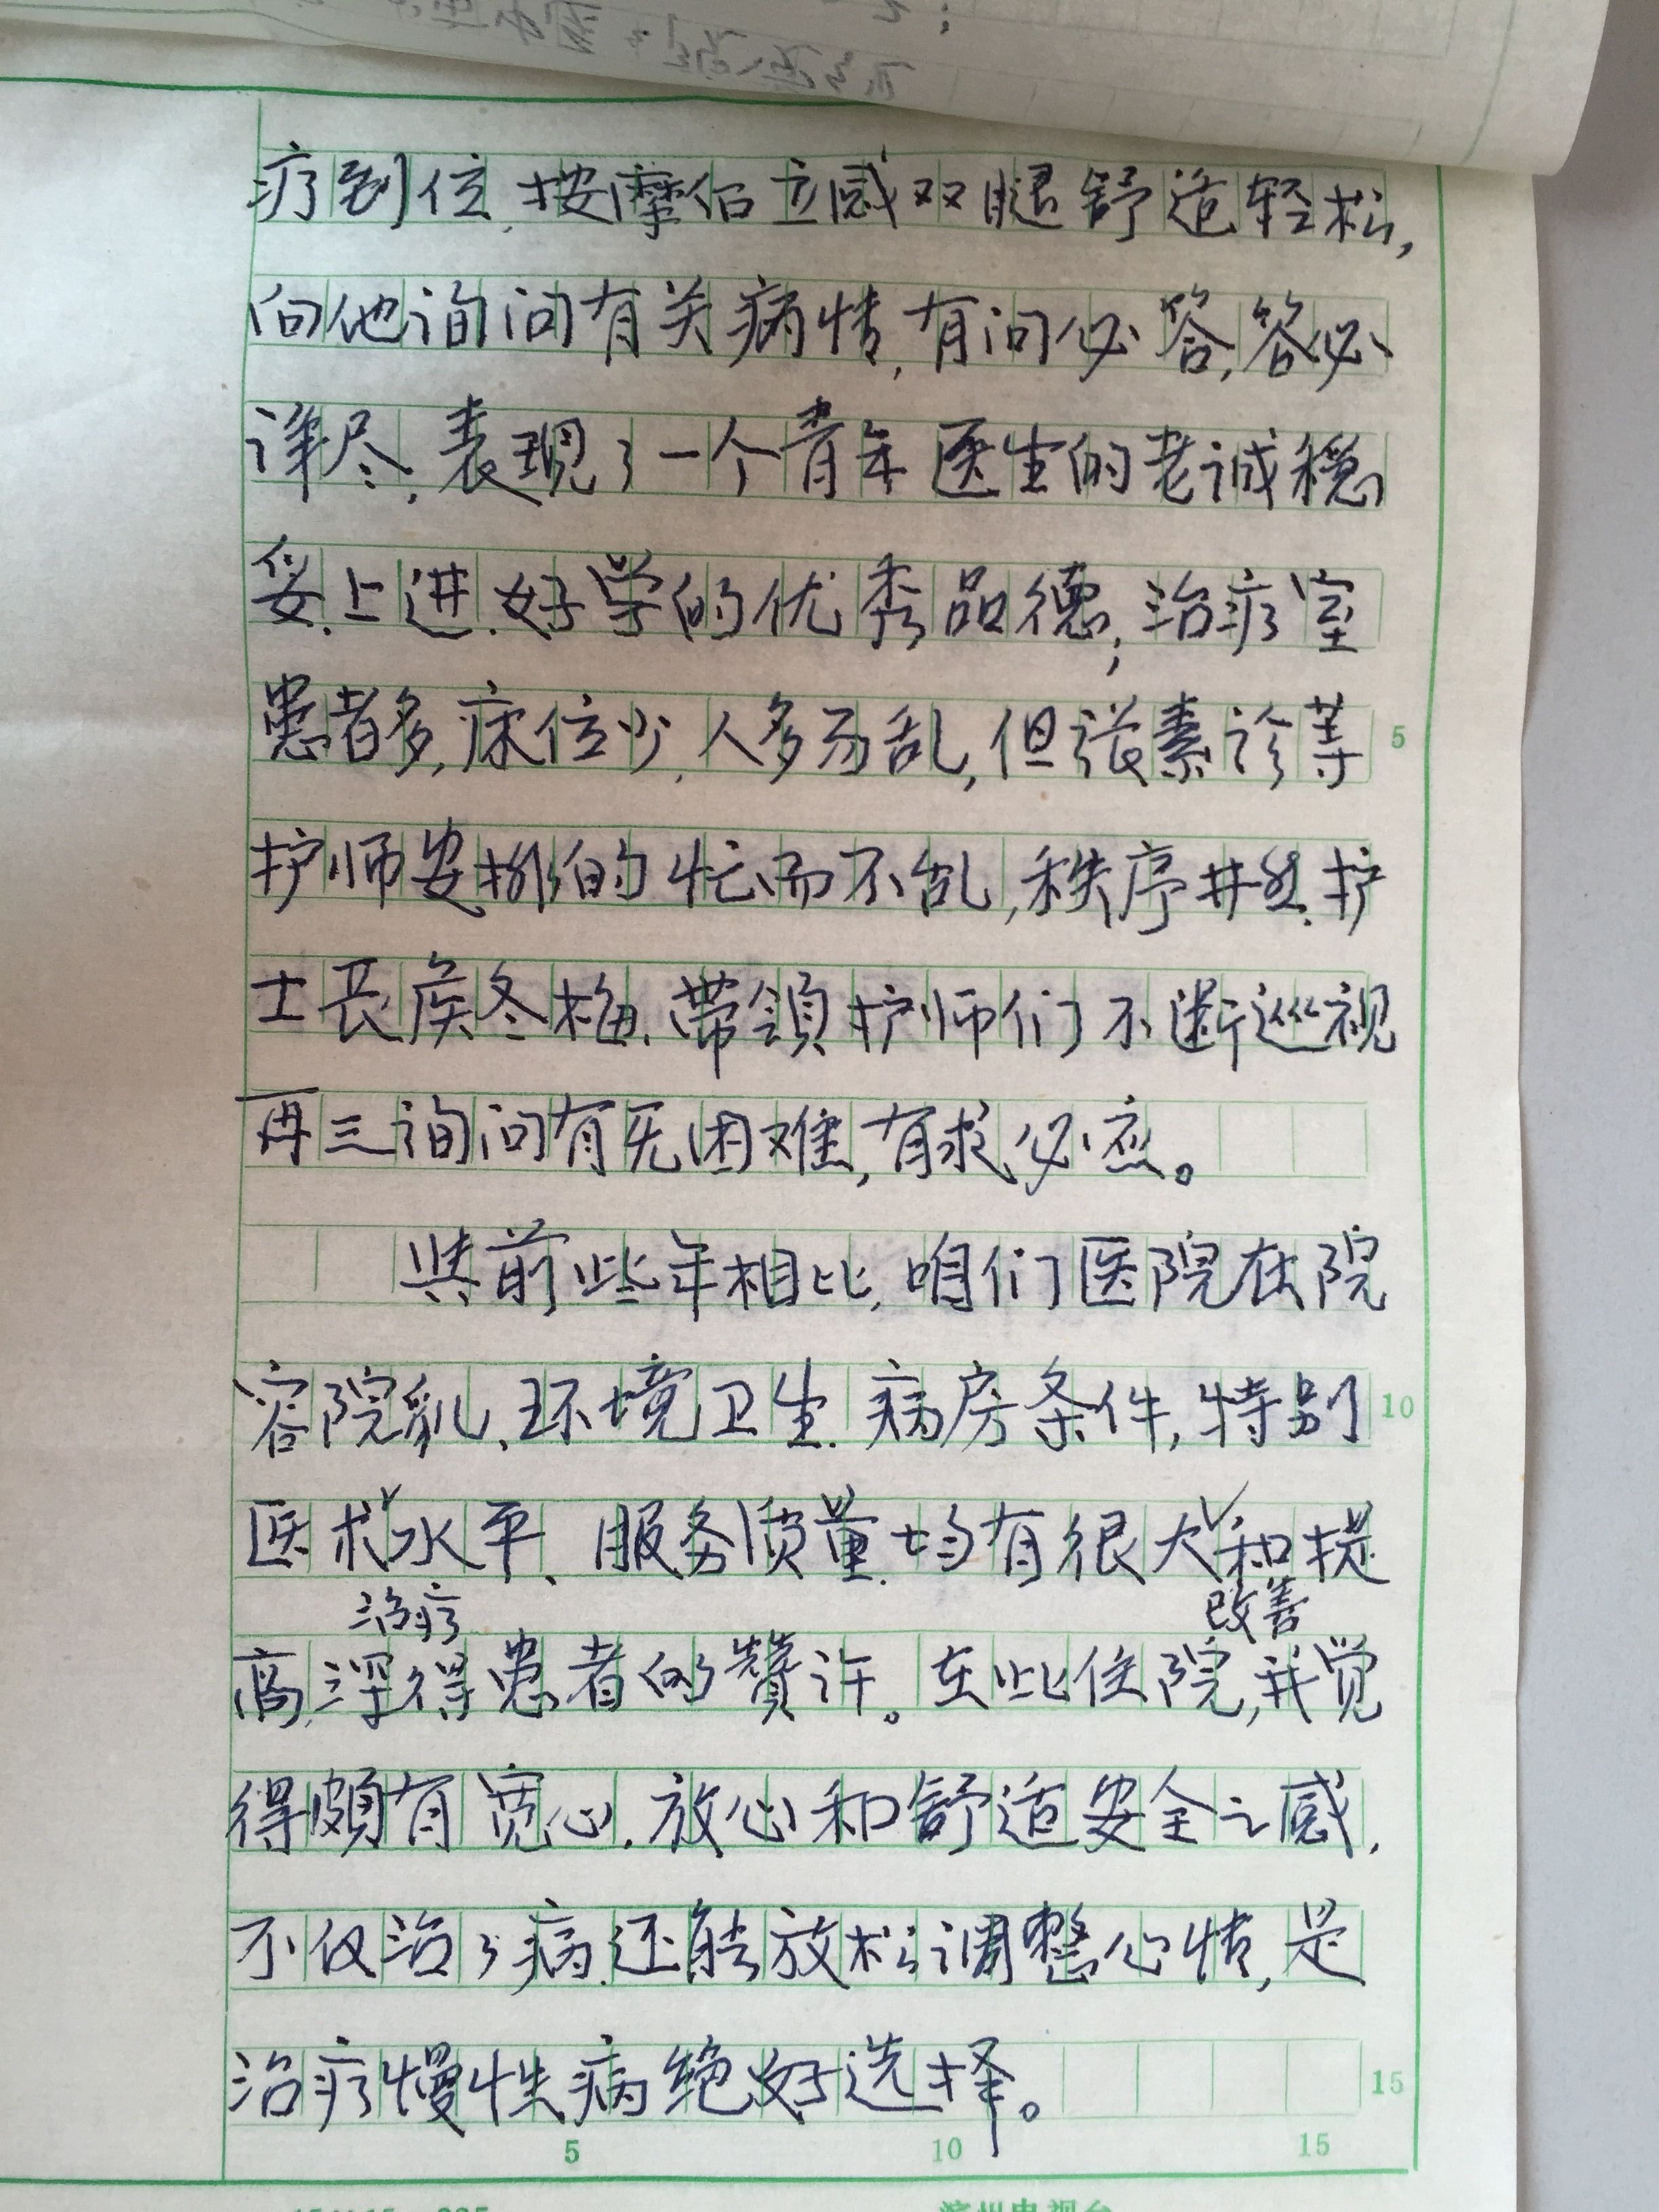 疗到位,按摩后立感双腿舒适轻松,
向他询问有关病情,有问必答,答必
详尽,表现了一个青年医生的老诚稳
妥、上进、好学的优秀品德;治疗室
患者多,床位少,人多易乱,但张素诊等
护师安排的忙而不乱,秩序井然.护
士长侯冬梅、带领护师们不断巡视
再三询问有无困难,有求必应。
与前些年相比,咱们医院在院
容院貌、环境卫生、病房条件,特别
医术水平、服务质量.均有很大和提
治疗 改善
高,深得患者的赞许。在此住院,我觉
得颇有宽心、放心和舒适安全之感,
不仅治了病.还能放松调整心情,是
治疗慢性病绝好选择。
5
10
15
5 10 15